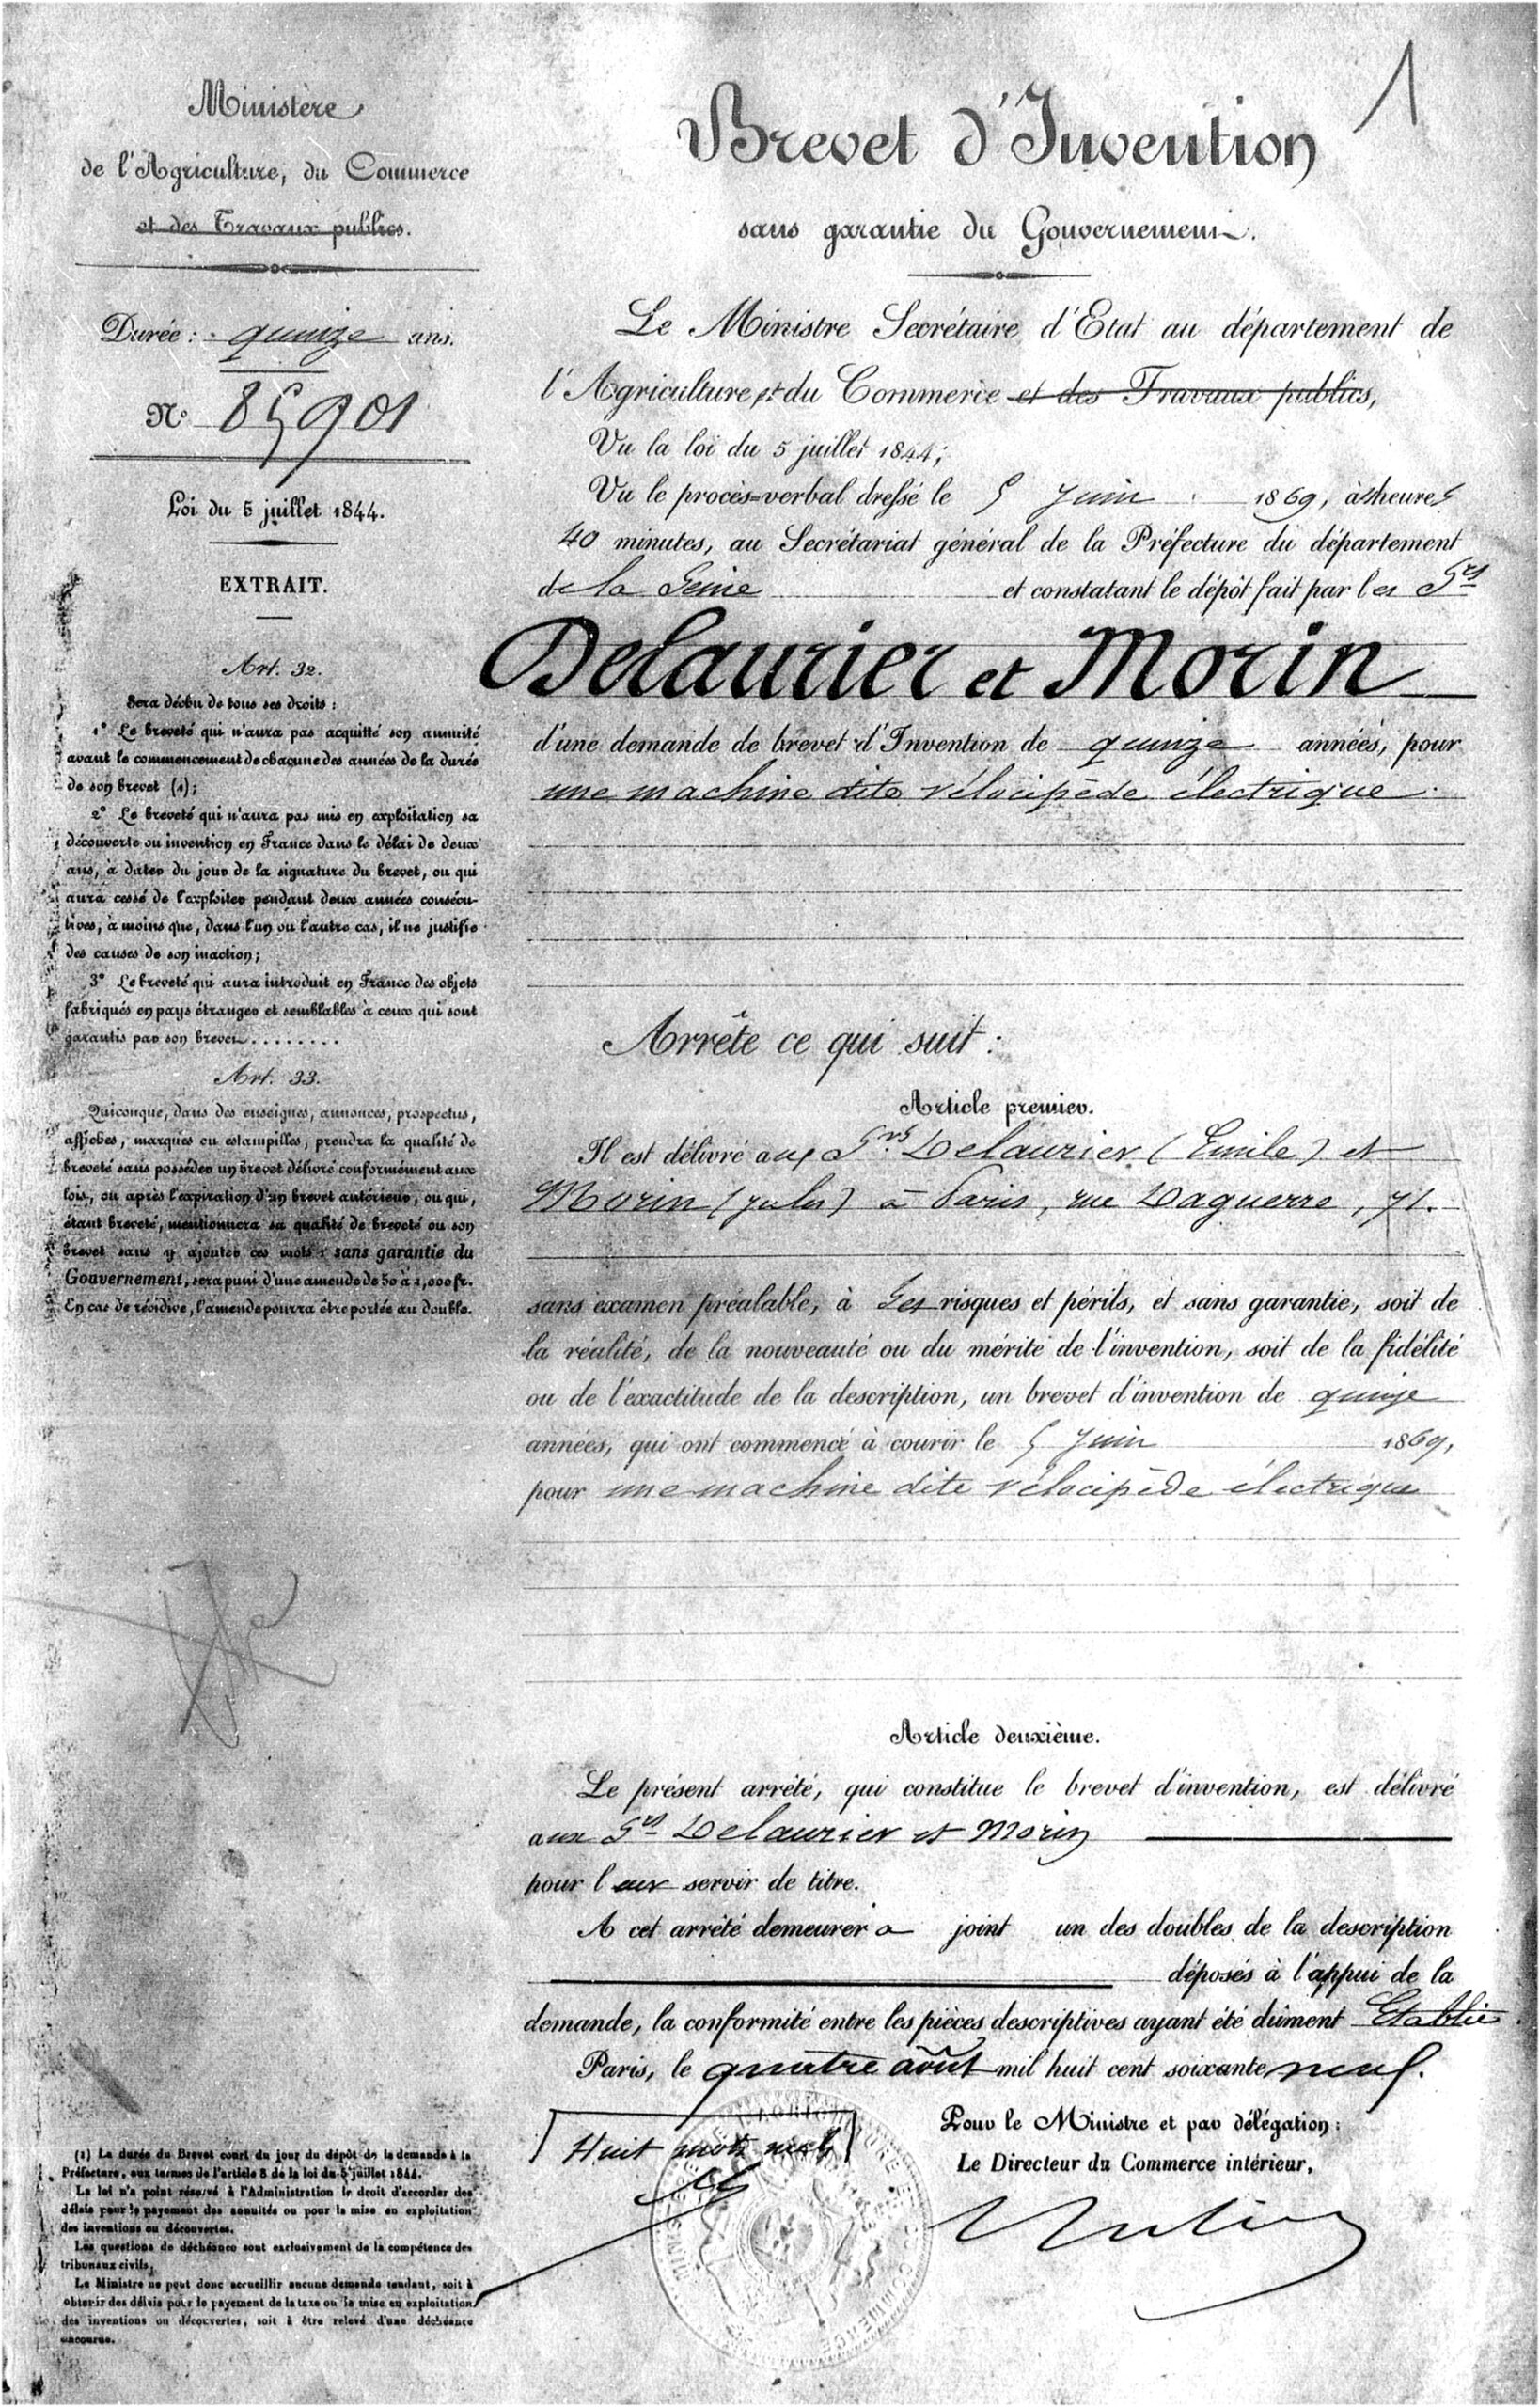 1
Ministère
de l'Agriculture, du Commerce
et des Travaux publics.
Durée : quinze ans.
N° 85901
Loi du 5 juillet 1844.
EXTRAIT.
Art. 32.
Sera déchu de tous ses droits :
1° Le breveté qui n'aura pas acquitté son annuité
avant le commencement de chacune des années de la durée
de son brevet (1) ;
2° Le breveté qui n'aura pas mis en exploitation sa
découverte ou invention en France dans le délai de deux
ans, à dater du jour de la signature du brevet, ou qui
aura cessé de l'exploiter pendant deux années consécu-
tives, à moins que, dans l'un ou l'autre cas, il ne justifie
des causes de son inaction ;
3° Le breveté qui aura introduit en France des objets
fabriqués en pays étranger et semblables à ceux qui sont
garantis par son brevet........
Art. 33.
Quiconque, dans des enseignes, annonces, prospectus,
affiches, marques ou estampilles, prendra la qualité de
breveté sans posséder un brevet délivré conformément aux
lois, ou après l'expiration d'un brevet antérieur, ou qui,
étant breveté, mentionnera sa qualité de breveté ou son
brevet sans y ajouter ces mots : sans garantie du
Gouvernement, sera puni d'une amende de 50 à 1,000 fr.
En cas de récidive, l'amende pourra être portée au double.
(1) La durée du Brevet court du jour du dépôt de la demande à la
Préfecture, aux termes de l'article 8 de la loi du 5 juillet 1844.
La loi n'a point réservé à l'Administration le droit d'accorder des
délais pour le payement des annuités ou pour la mise en exploitation
des inventions ou découvertes.
Les questions de déchéance sont exclusivement de la compétence des
tribunaux civils.
Le Ministre ne peut donc accueillir aucune demande tendant, soit à
obtenir des délais pour le payement de la taxe ou la mise en exploitation
des inventions ou découvertes, soit à être relevé d'une déchéance
encourue.
Brevet d'Invention
sans garantie du Gouvernement.
Le Ministre Secrétaire d'Etat au département de
l'Agriculture et du Commerce et des Travaux publics,
Vu la loi du 5 juillet 1844 ;
Vu le procès-verbal dressé le 5 Juin 1869, à heures
40 minutes, au Secrétariat général de la Préfecture du département
de la Seine et constatant le dépôt fait par les Srs
Delaurier et Morin
d'une demande de brevet d'Invention de quinze années, pour
une machine dite vélocipède électrique.
Arrête ce qui suit :
Article premier.
Il est délivré aux Srs. Delaurier (Emile) et
Morin (Jules) à Paris, rue Daguerre, 71.
sans examen préalable, à ses risques et périls, et sans garantie, soit de
la réalité, de la nouveauté ou du mérite de l'invention, soit de la fidélité
ou de l'exactitude de la description, un brevet d'invention de quinze
années, qui ont commencé à courir le 5 Juin 1869,
pour une machine dite vélocipède électrique
Article deuxième.
Le présent arrêté, qui constitue le brevet d'invention, est délivré
aux Srs Delaurier et Morin
pour leur servir de titre.
A cet arrêté demeurera joint un des doubles de la description
déposés à l'appui de la
demande, la conformité entre les pièces descriptives ayant été dûment Etablie
Paris, le quatre août mil huit cent soixante neuf.
Huit mots nuls
Pour le Ministre et par délégation :
Le Directeur du Commerce intérieur,